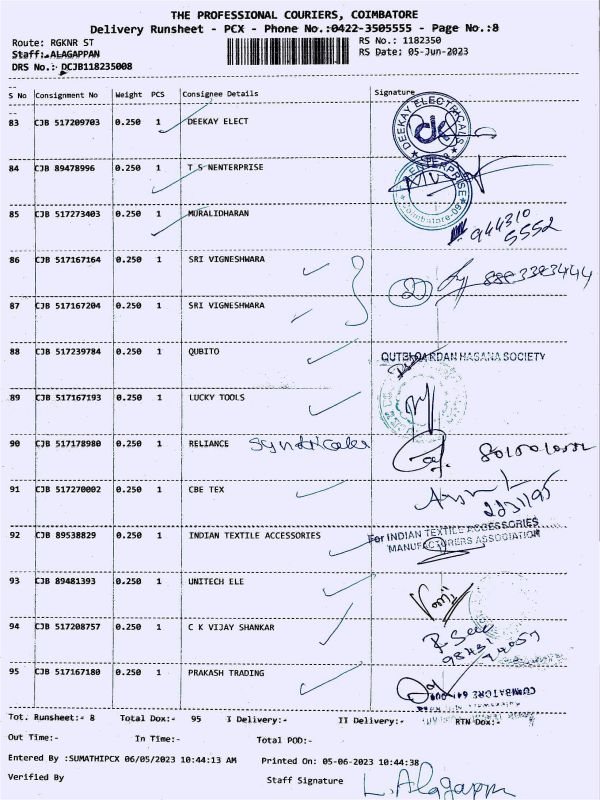 THE PROFESSIONAL COURIERS, COIMBATORE
Delivery Runsheet - PCX - Phone No.:0422-3505555 - Page No.:8
Route: RGKNR ST
RS No.: 1182350
Staff:.ALAGAPPAN
RS Date: 05-Jun-2023
DRS No.: DCJB118235008
S No Consignment No Weight PCS Consignee Details Signature
83 CJB 517209703 0.250 1 DEEKAY ELECT
DEEKAY ELECTRICALS
84 CJB 89478996 0.250 1 T S NENTERPRISE
ENTERPRISE
85 CJB 517273403 0.250 1 MURALIDHARAN
944310
5552
86 CJB 517167164 0.250 1 SRI VIGNESHWARA
87 CJB 517167204 0.250 1 SRI VIGNESHWARA
88 CJB 517239784 0.250 1 QUBITO
HASANA SOCIETY
89 CJB 517167193 0.250 1 LUCKY TOOLS
90 CJB 517178980 0.250 1 RELIANCE
91 CJB 517270002 0.250 1 CBE TEX
92 CJB 89538829 0.250 1 INDIAN TEXTILE ACCESSORIES
For INDIAN TEXTILE ACCESSORIES
MANUFACTURERS ASSOCIATION
93 CJB 89481393 0.250 1 UNITECH ELE
94 CJB 517208757 0.250 1 C K VIJAY SHANKAR
95 CJB 517167180 0.250 1 PRAKASH TRADING
Tot. Runsheet:- 8 Total Dox:- 95 I Delivery:- II Delivery:- RTN Dox:-
Out Time:- In Time:- Total POD:-
Entered By :SUMATHIPCX 06/05/2023 10:44:13 AM Printed On: 05-06-2023 10:44:38
Verified By Staff Signature L. Alagappan